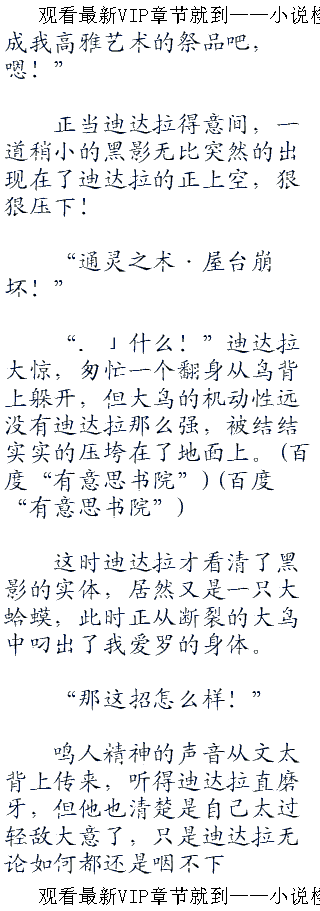 观看最新VIP章节就到——小说检
成我高雅艺术的祭品吧，
嗯！”
正当迪达拉得意间，一
道稍小的黑影无比突然的出
现在了迪达拉的正上空，狠
狠压下！
“通灵之术·屋台崩
坏！”
“．」什么！”迪达拉
大惊，匆忙一个翻身从鸟背
上躲开，但大鸟的机动性远
没有迪达拉那么强，被结结
实实的压垮在了地面上。(百
度“有意思书院”)(百度
“有意思书院”)
这时迪达拉才看清了黑
影的实体，居然又是一只大
蛤蟆，此时正从断裂的大鸟
中叼出了我爱罗的身体。
“那这招怎么样！”
鸣人精神的声音从文太
背上传来，听得迪达拉直磨
牙，但他也清楚是自己太过
轻敌大意了，只是迪达拉无
论如何都还是咽不下
观看最新VIP章节就到——小说检